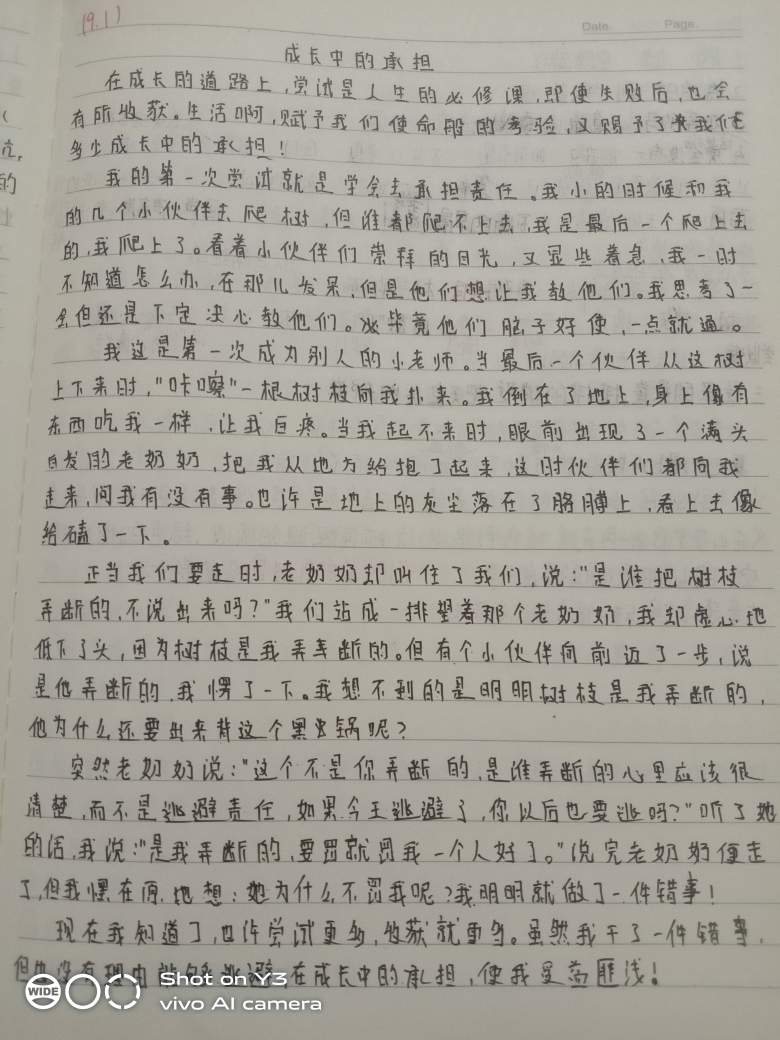 (9.1)
Date. Page.
成长中的承担
在成长的道路上,尝试是人生的必修课,即使失败后,也会
有所收获。生活啊,赋予我们使命般的考验,又赐予了我们
多少成长中的承担!
我的第一次尝试就是学会去承担责任。我小的时候和我
的几个小伙伴去爬树,但谁都爬不上去,我是最后一个爬上去
的,我爬上了。看着小伙伴们崇拜的目光,又显些着急,我一时
不知道怎么办,在那儿发呆,但是他们想让我教他们。我思考了一
会但还是下定决心教他们。毕竟他们脑子好使,一点就通。
我这是第一次成为别人的小老师。当最后一个伙伴从这树
上下来时,"咔嚓"一根树枝向我扑来。我倒在了地上,身上像有
东西吃我一样,让我巨疼。当我起不来时,眼前出现了一个满头
白发的老奶奶,把我从地方给抱了起来,这时伙伴们都向我
走来,问我有没有事。也许是地上的灰尘落在了胳膊上,看上去像
给磕了一下。
正当我们要走时,老奶奶却叫住了我们,说:"是谁把树枝
弄断的,不说出来吗?"我们站成一排望着那个老奶奶,我却虚心地
低下了头,因为树枝是我弄断的。但有个小伙伴向前迈了一步,说
是他弄断的,我愣了一下。我想不到的是明明树枝是我弄断的,
他为什么还要出来背这个黑锅呢?
突然老奶奶说:"这个不是你弄断的,是谁弄断的心里应该很
清楚,而不是逃避责任,如果今天逃避了,你以后也要逃吗?"听了她
的话,我说:"是我弄断的,要罚就罚我一个人好了。"说完老奶奶便走
了,但我愣在原地想:她为什么不罚我呢?我明明就做了一件错事!
现在我知道了,也许尝试更多,收获就更多。虽然我干了一件错事,
但也没有理由逃避,在成长中的承担,使我受益匪浅!
WIDE
Shot on Y3
vivo AI camera